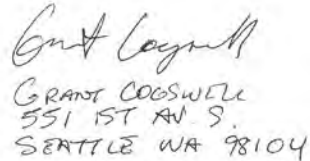 Grant Cogswell
GRANT COGSWELL
551 1ST AV S.
SEATTLE WA 98104